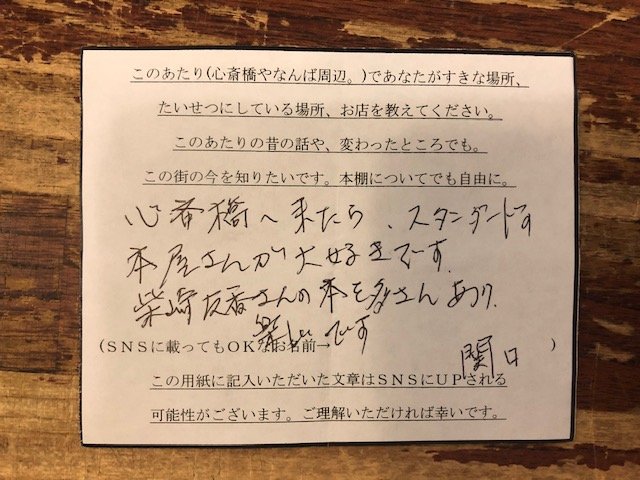 このあたり(心斎橋やなんば周辺。)であなたがすきな場所、
たいせつにしている場所、お店を教えてください。
このあたりの昔の話や、変わったところでも。
この街の今を知りたいです。本棚についてでも自由に。
心斎橋へ来たら、スタンダードの
本屋さんが大好きです。
柴崎友香さんの本も多さんあり、
楽しいです
(SNSに載ってもOKなお名前→
関口 )
この用紙に記入いただいた文章はSNSにUPされる
可能性がございます。ご理解いただければ幸いです。